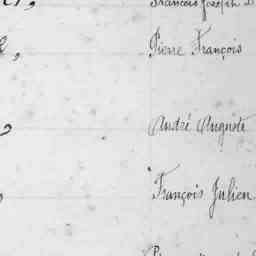 François Joseph
Pierre François
André Auguste
François Julien